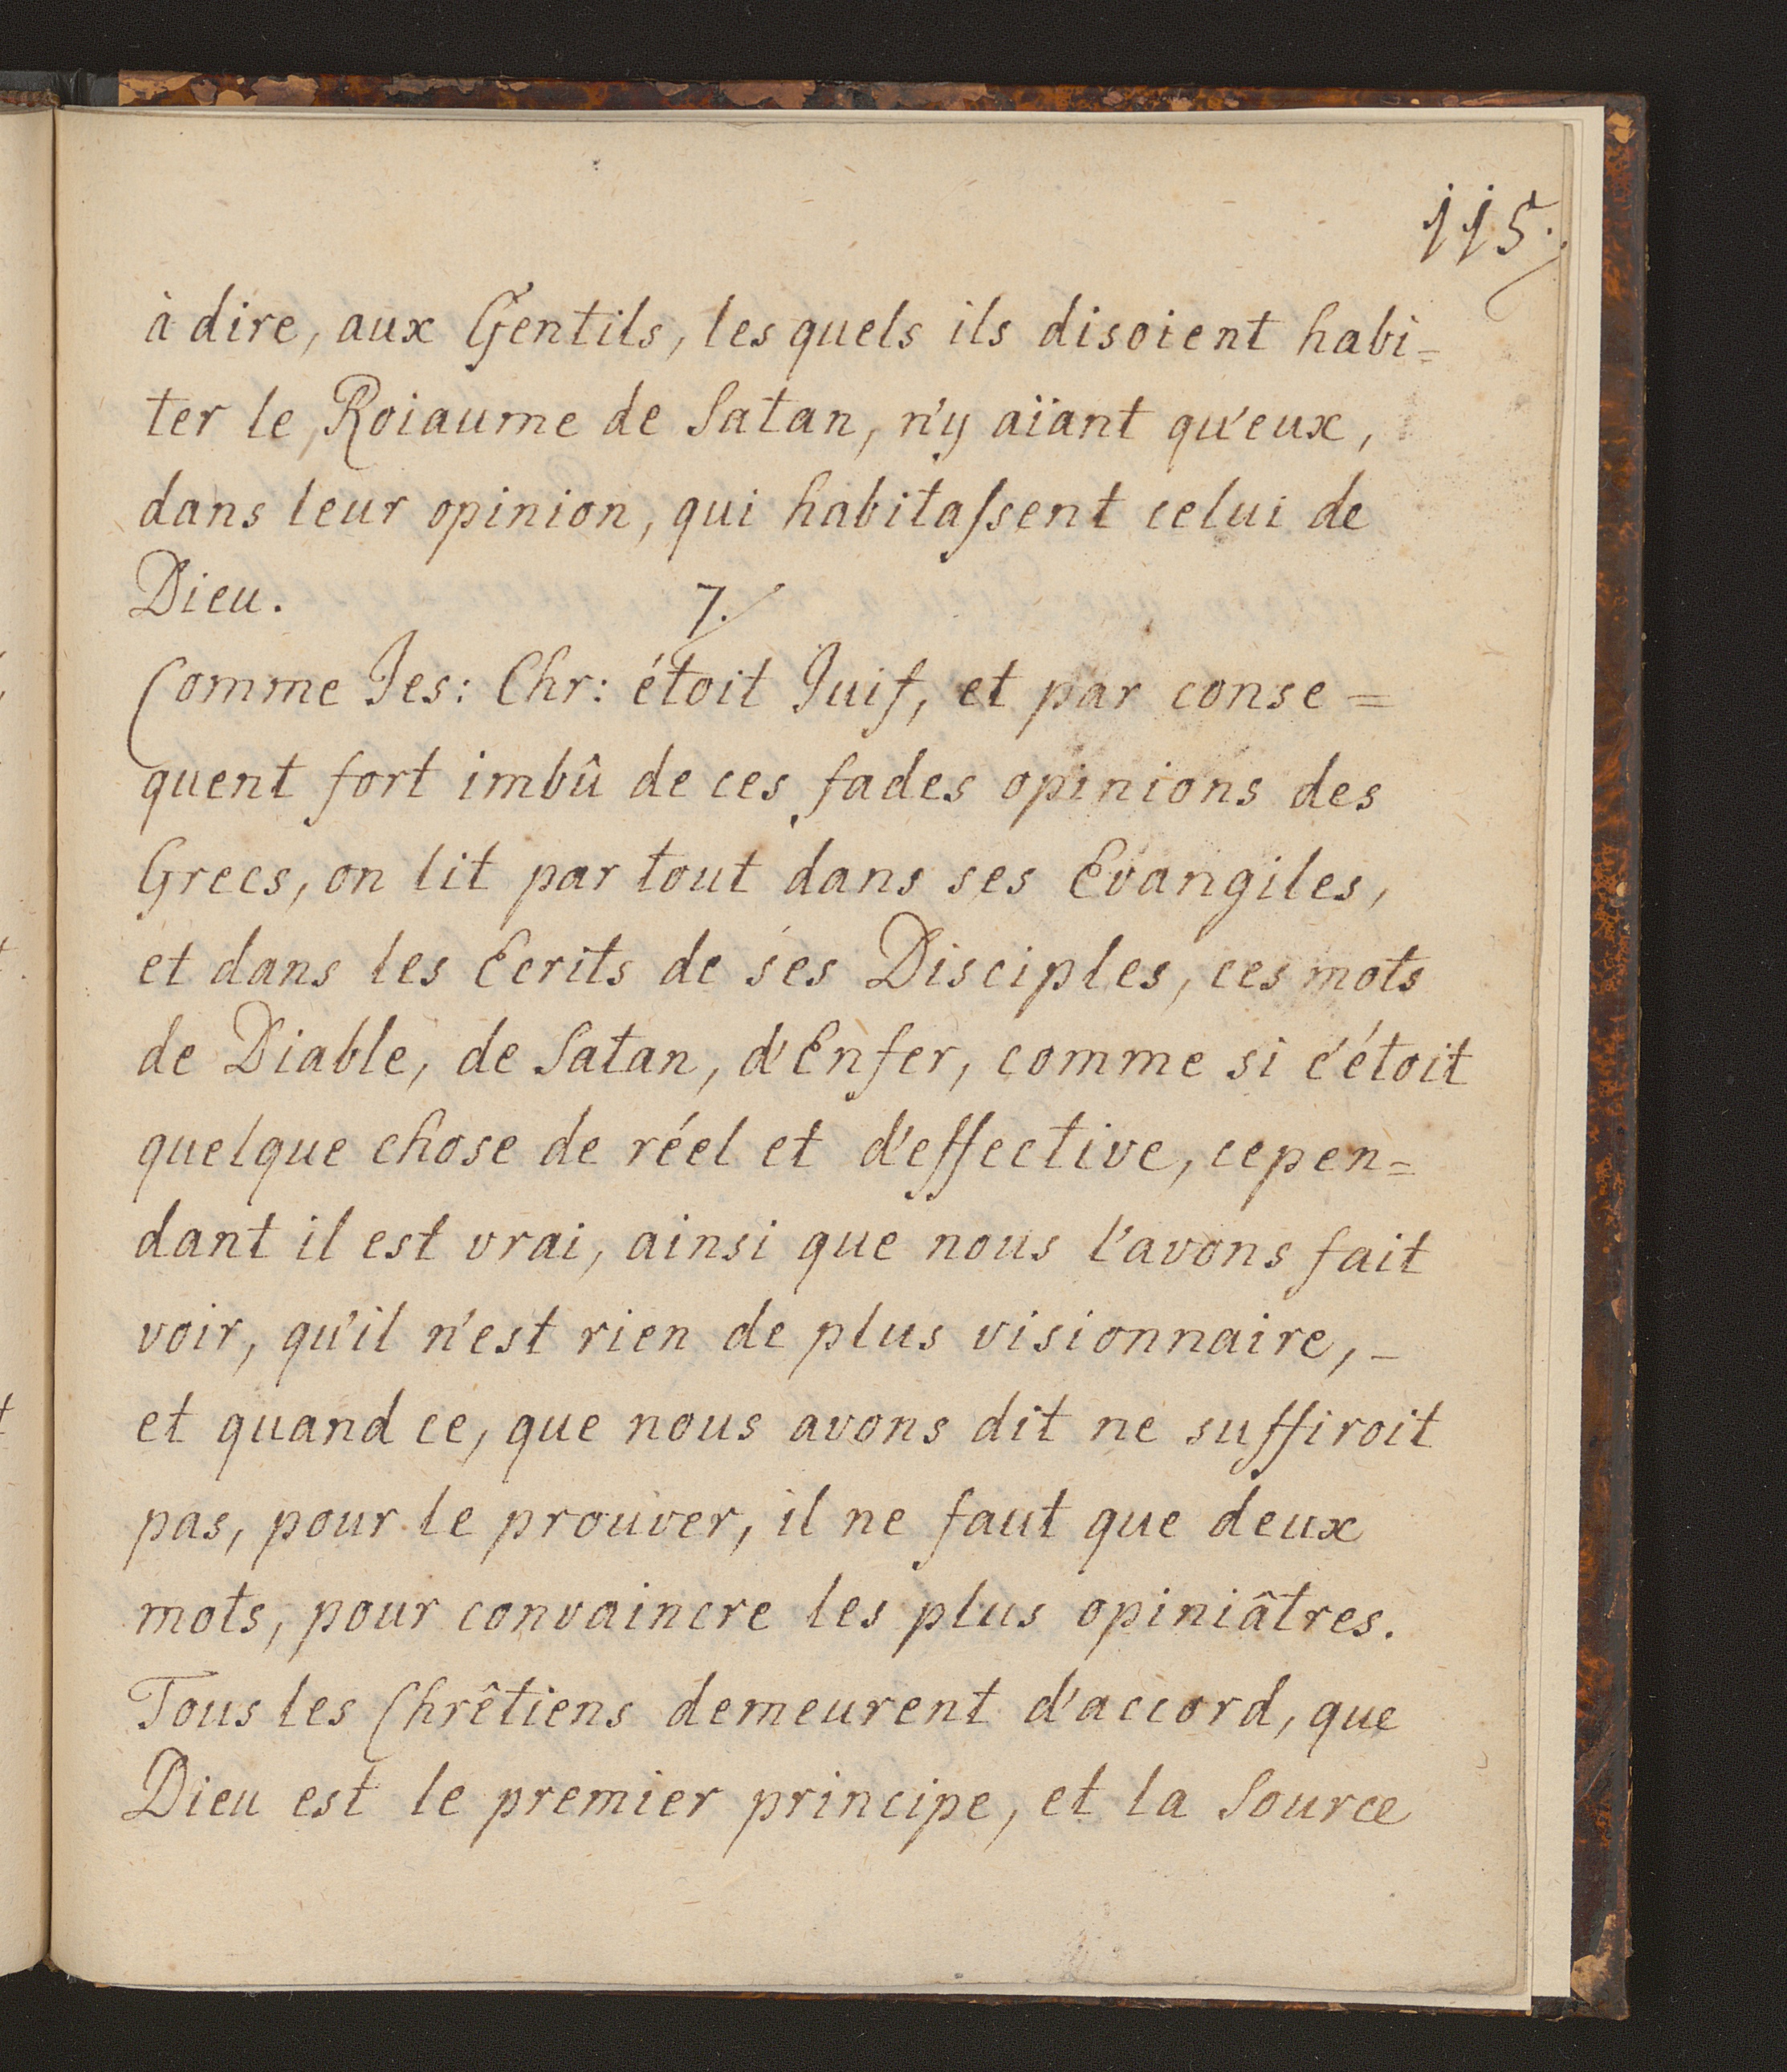 115.
à dire, aux Gentils, les quels ils disoient habi=
ter le, Roiaume de Satan, n'y aïant qu'eux,
dans leur opinion, qui habitaſsent celui de
Dieu.
7.
Comme Jes: Chr: étoit Juif, et par conse=
quent fort imbû de ces fades opinions des
Grecs, on lit par tout dans ses Evangiles,
et dans les Ecrits de ses Disciples, ces mots
de Diable, de Satan, d'Enfer, comme si c'étoit
quelque chose de réel et d'effective, cepen=
dant il est vrai, ainsi que nous l'avons fait
voir, qu'il n'est rien de plus visionnaire, –
et quand ce, que nous avons dit ne suffiroit
pas, pour le prouver, il ne faut que deux
mots, pour convaincre les plus opiniâtres.
Tous les Chrêtiens demeurent d'accord, que
Dieu est le premier principe, et la Source